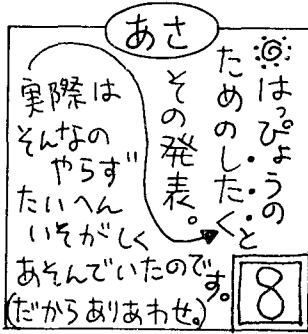 あさ
はっぴょうの
ためのしたくと
その発表。
実際は
そんなの
やらず
たいへん
いそがしく
あそんでいたのです。
(だからありあわせ。)
8